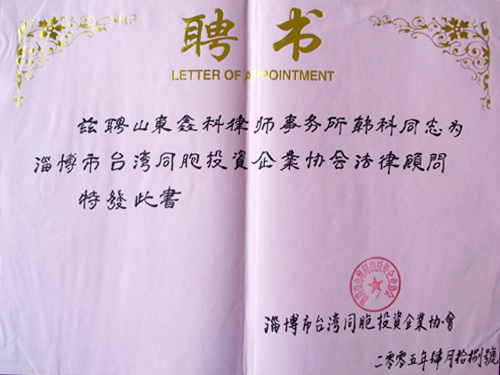 聘书
LETTER OF APPOINTMENT
兹聘山東鑫科律师事务所韩科同志为
淄博市台湾同胞投資企業协会法律顧問
特發此書
淄博市台湾同胞投資企業协會
二零零五年肆月拾捌號